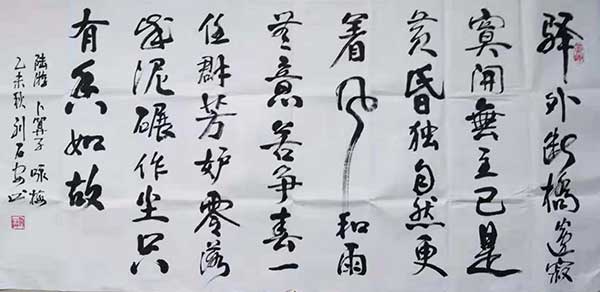 驿外断橋邊寂
寞開無主已是
黄昏独自愁更
着风和雨
無意苦争春一
任群芳妒零落
成泥碾作尘只
有香如故
陸游 卜算子 詠梅
乙未秋 刘石安书